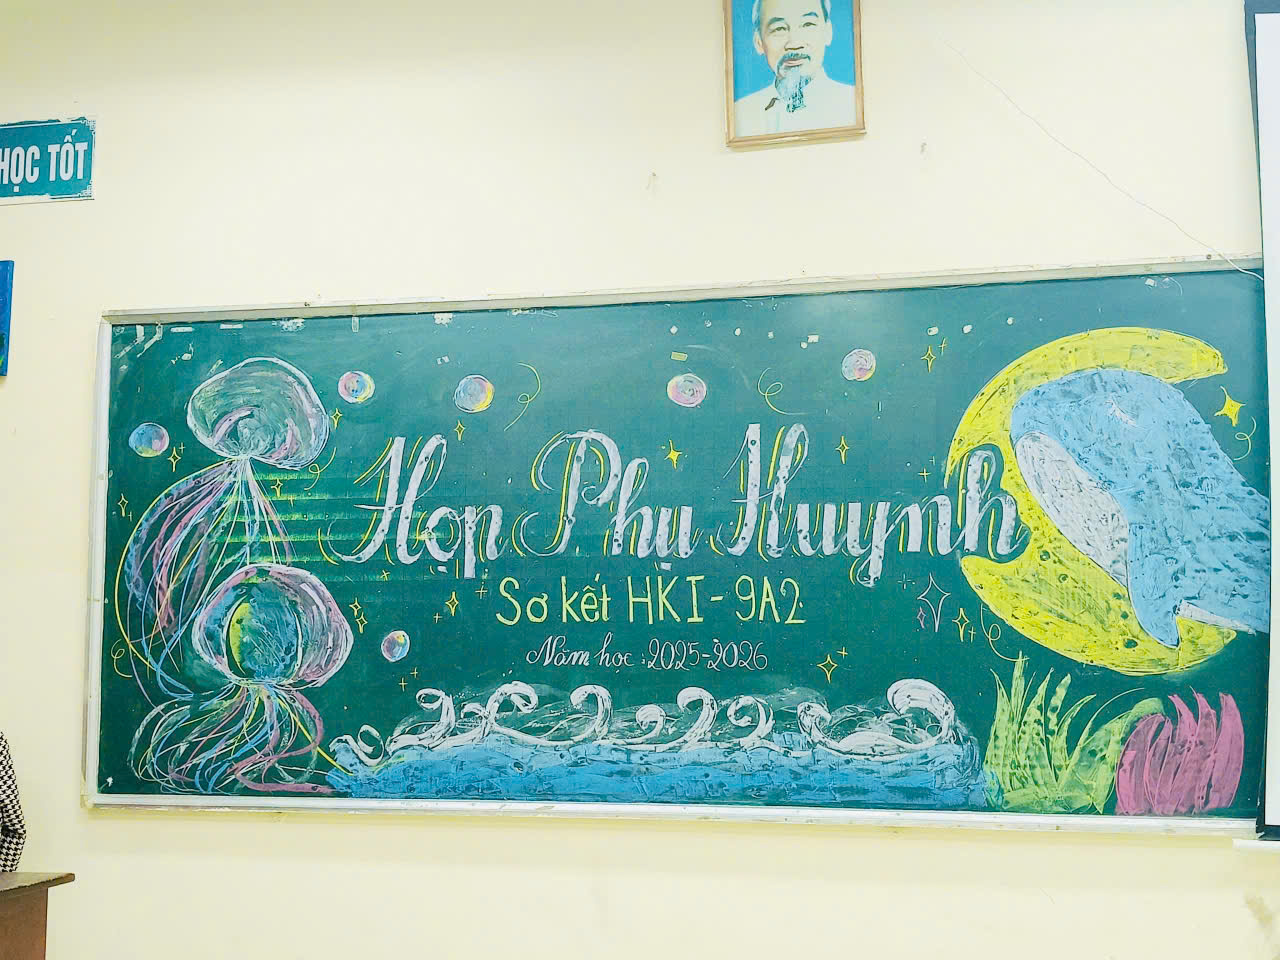 HỌC TỐT
Họp Phụ Huynh
Sơ kết HKI - 9A2
Năm học : 2025-2026